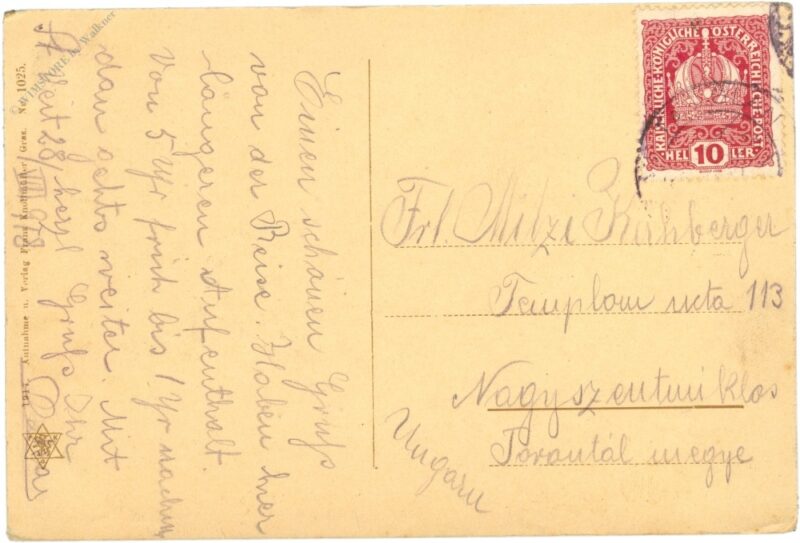 Einen schönen Gruß
von der Reise. Haben hier
längeren Aufenthalt.
Von 5 Uhr früh bis 1 Uhr nachm.
dan gehts weiter. Mit
herzl. Gruß Ihr
28/VIII 918
KAISERLICHE KÖNIGLICHE ÖSTERREICHISCHE POST
HELLER
10
Frl. Mitzi
Templom ucta 113
Nagyszentmiklos
Torontál megye
Ungarn
1917 Aufnahme u. Verlag Franz Knollmüller, Graz. Nr. 1025.
Walkner